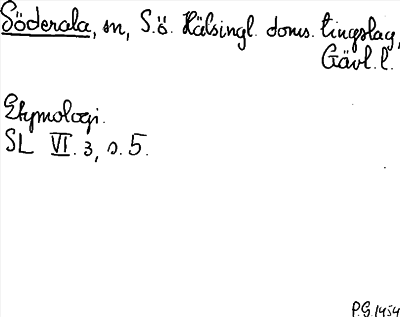 Söderala, sn, S.ö. Hälsingl. doms. tingslag,
Gävl. l.
Etymologi.
SL VI. 3, s. 5.
P.G. 1454